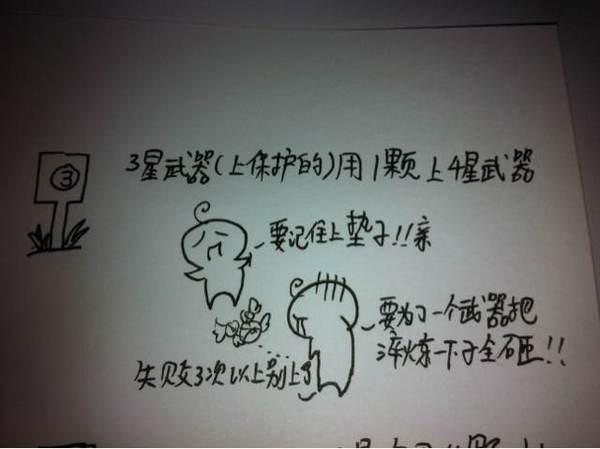 ③
3星武器(上保护的)用1颗上4星武器
要记住上垫子!!亲
要为了一个武器把
淬炼一下子全砸!!
失败3次以上别上了